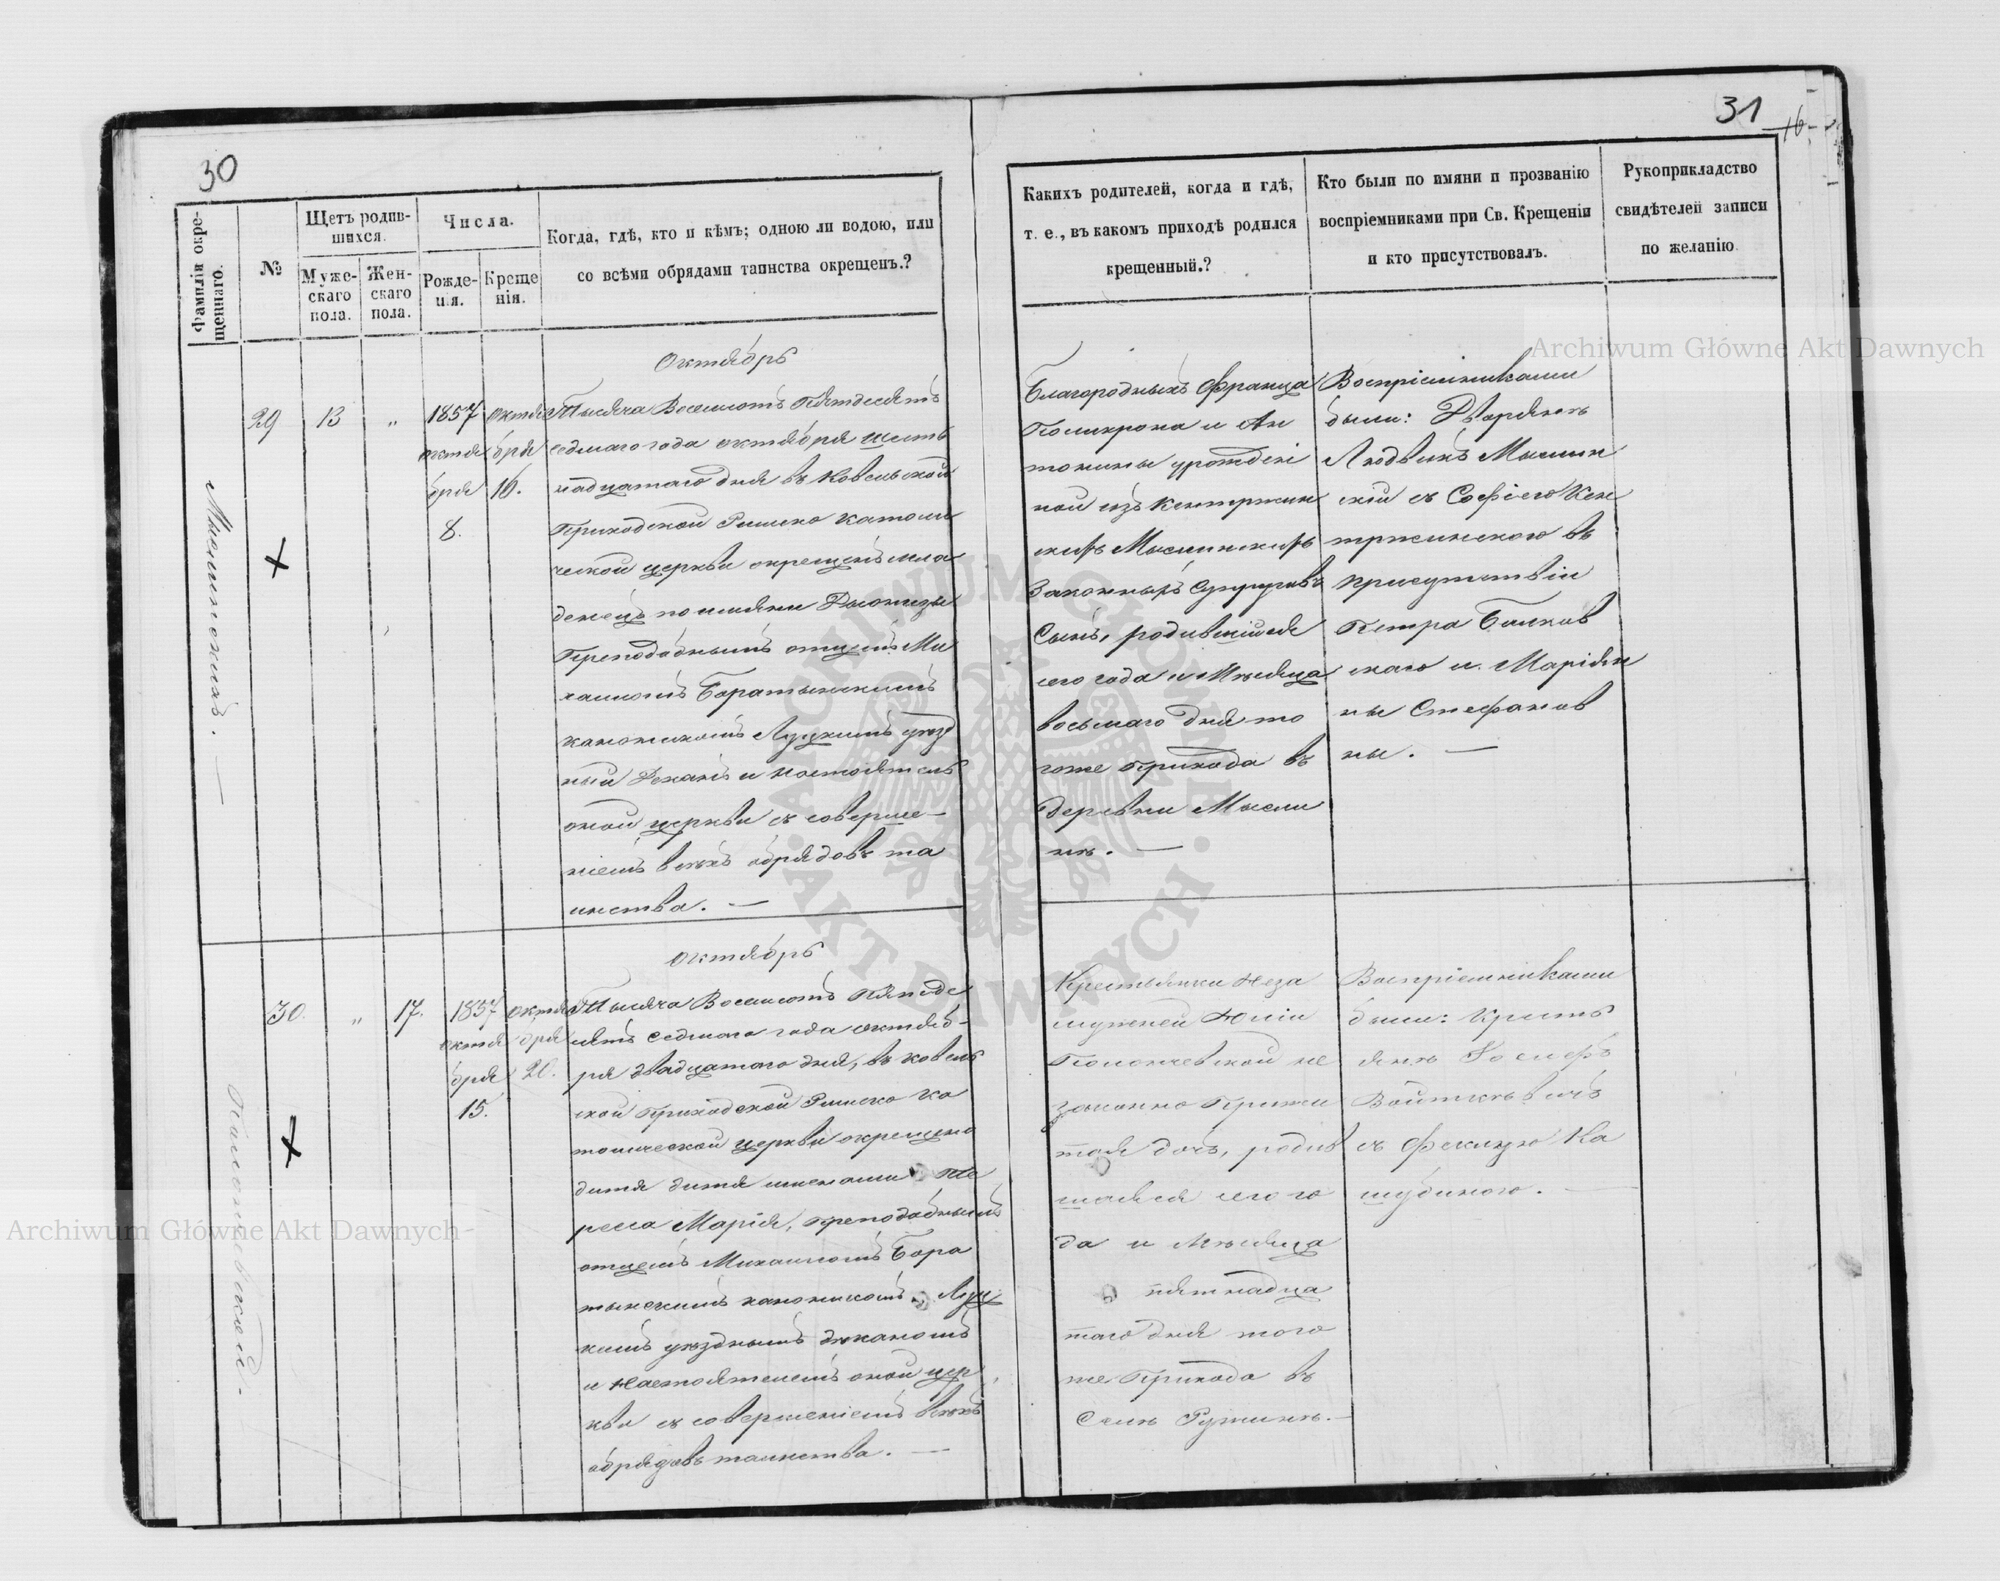 30
Фамиліи окре-
щеннаго.
№
Щетъ родив-
шихся.
Муже-
скаго
пола.
Жен-
скаго
пола.
Числа.
Рожде-
нія.
Креще
нія.
Когда, гдѣ, кто и кѣмъ; одною ли водою, или
со всѣми обрядами таинства окрещенъ.?
Мыслинскихъ. —
29
13
„
1857
октя
бря
8.
октя
бря
16.
Октябрь
Тысяча Восемьсотъ Пятдесятъ
седмаго года октября шест
надцатаго дня въ Ковельской
Приходской Римско католи
ческой церкви окрещенъ мла
денецъ по имяни Дионизы
Преподобнымъ отцемъ Ми
хаиломъ Боратынскимъ
каноникомъ Луцкимъ уѣзд
ный Деканъ и настоятель
оной церкви съ соверше—
ніемъ всѣхъ обрядовъ та
инства. —
30.
„
17.
1857
октя
бря
15.
октя
бря
20.
октябрь
Тысяча Восемьсотъ Пятьде
сятъ седмаго года октяб-
ря двадцатаго дня, въ ковель
ской Приходской Римско ка
толической церкви окрещено
дитя дитя именами Те
реса Марія, преподобнымъ
отцемъ Михаиломъ Бора
тынскимъ каноникомъ Луц
кимъ уѣзднымъ деканомъ
и настоятелемъ оной цер
кви съ совершеніемъ всѣхъ
обрядовъ таинства. —
31
16
Какихъ родителей, когда и гдѣ,
т. е., въ какомъ приходѣ родился
крещенный.?
Кто были по имяни и прозванію
воспріемниками при Св. Крещеніи
и кто присутствовалъ.
Рукоприкладство
свидѣтелей записи
по желанію
Благородныхъ Франца
Поликрона и Ан
тонины урожден
ной изъ Кентржин
скихъ Мыслинскихъ
Законныхъ Супруговъ
Сынъ, родившійся
сего года и Мѣсяца
восьмаго дня то
гоже Прихода въ
деревни Мысли
нѣ. —
Воспріемниками
были: Дворянъ
Людвикъ Мыслин
скій съ Софіею Кен
тржинскою въ
присутствіи
Петра
скаго и Маріян
ны Стефанов
ны. —
Крестьянки Неза
мужней Юліи
не
законно Прижи
тая дочь, родив
шаяся сего го
да и Мѣсяца
пятнадца
таго дня того
же Прихода въ
Селѣ Ружинѣ. —
Воспріемниками
были: Крест
янъ Іосифъ
Войткѣвичъ
съ Феклою Ка
шубиною. —
Archiwum Główne Akt Dawnych
Archiwum Główne Akt Dawnych
ARCHIWUM GŁÓWNE
· AKT DAWNYCH ·